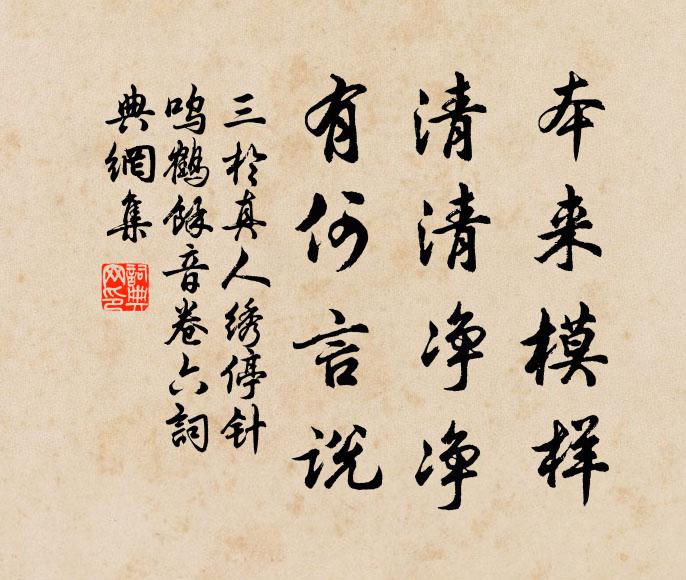 本来模样
清清净净
有何言说
三於真人绣停针
鸣鹤馀音卷六詞
典網集
詞典网印